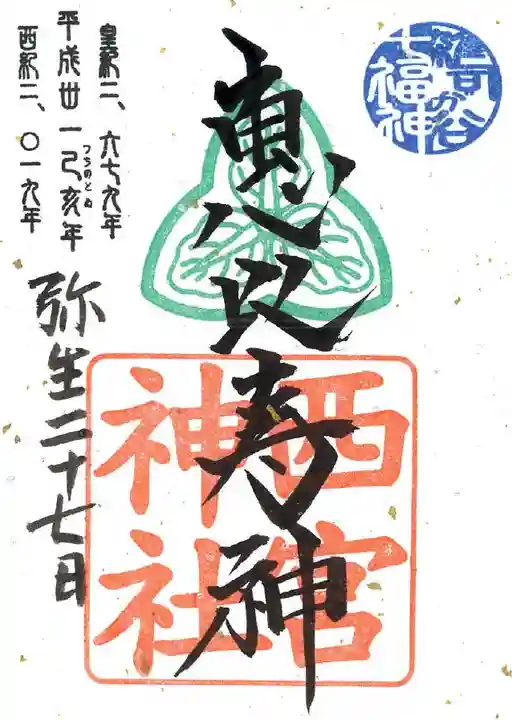 七福神
恵比寿神
西宮
神社
皇紀二、六七九年
平成丗一己亥年
つちのとゐ
西紀二、〇一九年
弥生二十七日